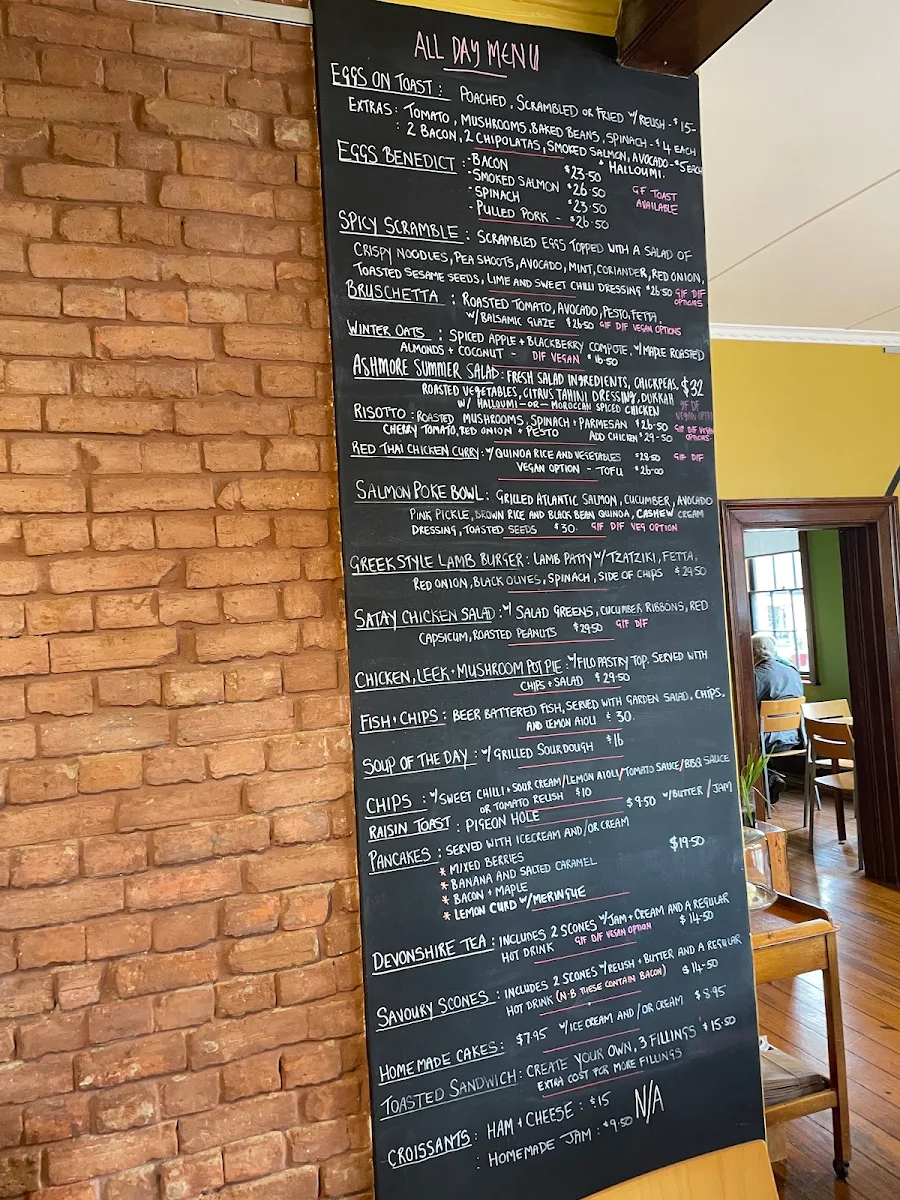 ALL DAY MENU
EGGS ON TOAST: POACHED, SCRAMBLED OR FRIED W/ RELISH - $15-
EXTRAS: TOMATO, MUSHROOMS, BAKED BEANS, SPINACH - $4 EACH
: 2 BACON, 2 CHIPOLATAS, SMOKED SALMON, AVOCADO - $5 EACH
* HALLOUMI.
EGGS BENEDICT: - BACON $23.50
- SMOKED SALMON $26.50
- SPINACH $23.50
- PULLED PORK - $26.50
GF TOAST
AVAILABLE
SPICY SCRAMBLE: SCRAMBLED EGGS TOPPED WITH A SALAD OF
CRISPY NOODLES, PEA SHOOTS, AVOCADO, MINT, CORIANDER, RED ONION,
TOASTED SESAME SEEDS, LIME AND SWEET CHILLI DRESSING $26.50 GIF DIF
OPTIONS
BRUSCHETTA: ROASTED TOMATO, AVOCADO, PESTO, FETTA,
W/ BALSAMIC GLAZE $26.50 GIF DIF VEGAN OPTIONS
WINTER OATS: SPICED APPLE + BLACKBERRY COMPOTE, W/ MAPLE ROASTED
ALMONDS + COCONUT - DIF VEGAN $16.50
ASHMORE SUMMER SALAD: FRESH SALAD INGREDIENTS, CHICKPEAS, $32
ROASTED VEGETABLES, CITRUS TAHINI DRESSING, DUKKAH
W/ HALLOUMI - OR - MOROCCAN SPICED CHICKEN GF DF
VEGAN OPTI
RISOTTO: ROASTED MUSHROOMS, SPINACH + PARMESAN $26.50
CHERRY TOMATO, RED ONION + PESTO ADD CHICKEN $29.50 GIF DIF VEGAN
OPTIONS
RED THAI CHICKEN CURRY: W/ QUINOA RICE AND VEGETABLES $28.50 GIF DIF
VEGAN OPTION - TOFU $26.00
SALMON POKE BOWL: GRILLED ATLANTIC SALMON, CUCUMBER, AVOCADO
PINK PICKLE, BROWN RICE AND BLACK BEAN QUINOA, CASHEW CREAM
DRESSING, TOASTED SEEDS $30. GIF DIF VEG OPTION
GREEK STYLE LAMB BURGER: LAMB PATTY W/ TZATZIKI, FETTA,
RED ONION, BLACK OLIVES, SPINACH, SIDE OF CHIPS $29.50
SATAY CHICKEN SALAD: W/ SALAD GREENS, CUCUMBER RIBBONS, RED
CAPSICUM, ROASTED PEANUTS $29.50 GIF DIF
CHICKEN, LEEK + MUSHROOM POT PIE: W/ FILO PASTRY TOP. SERVED WITH
CHIPS + SALAD $29.50
FISH + CHIPS: BEER BATTERED FISH, SERVED WITH GARDEN SALAD, CHIPS.
AND LEMON AIOLI $30.
SOUP OF THE DAY: W/ GRILLED SOURDOUGH $16
CHIPS: W/ SWEET CHILLI + SOUR CREAM/LEMON AIOLI/TOMATO SAUCE/BBQ SAUCE
OR TOMATO RELISH $10
RAISIN TOAST: PIGEON HOLE $9.50 W/ BUTTER / JAM
PANCAKES: SERVED WITH ICECREAM AND/OR CREAM $19.50
* MIXED BERRIES
* BANANA AND SALTED CARAMEL
* BACON + MAPLE
* LEMON CURD W/ MERINGUE
DEVONSHIRE TEA: INCLUDES 2 SCONES W/ JAM + CREAM AND A REGULAR
HOT DRINK GIF DIF VEGAN OPTION $14.50
SAVOURY SCONES: INCLUDES 2 SCONES W/ RELISH + BUTTER AND A REGULAR
HOT DRINK (N.B THESE CONTAIN BACON) $14.50
HOMEMADE CAKES: $7.95 W/ ICE CREAM AND/OR CREAM $8.95
TOASTED SANDWICH: CREATE YOUR OWN, 3 FILLINGS $15.50
EXTRA COST FOR MORE FILLINGS
CROISSANTS: HAM + CHEESE: $15
: HOMEMADE JAM: $9.50 N/A